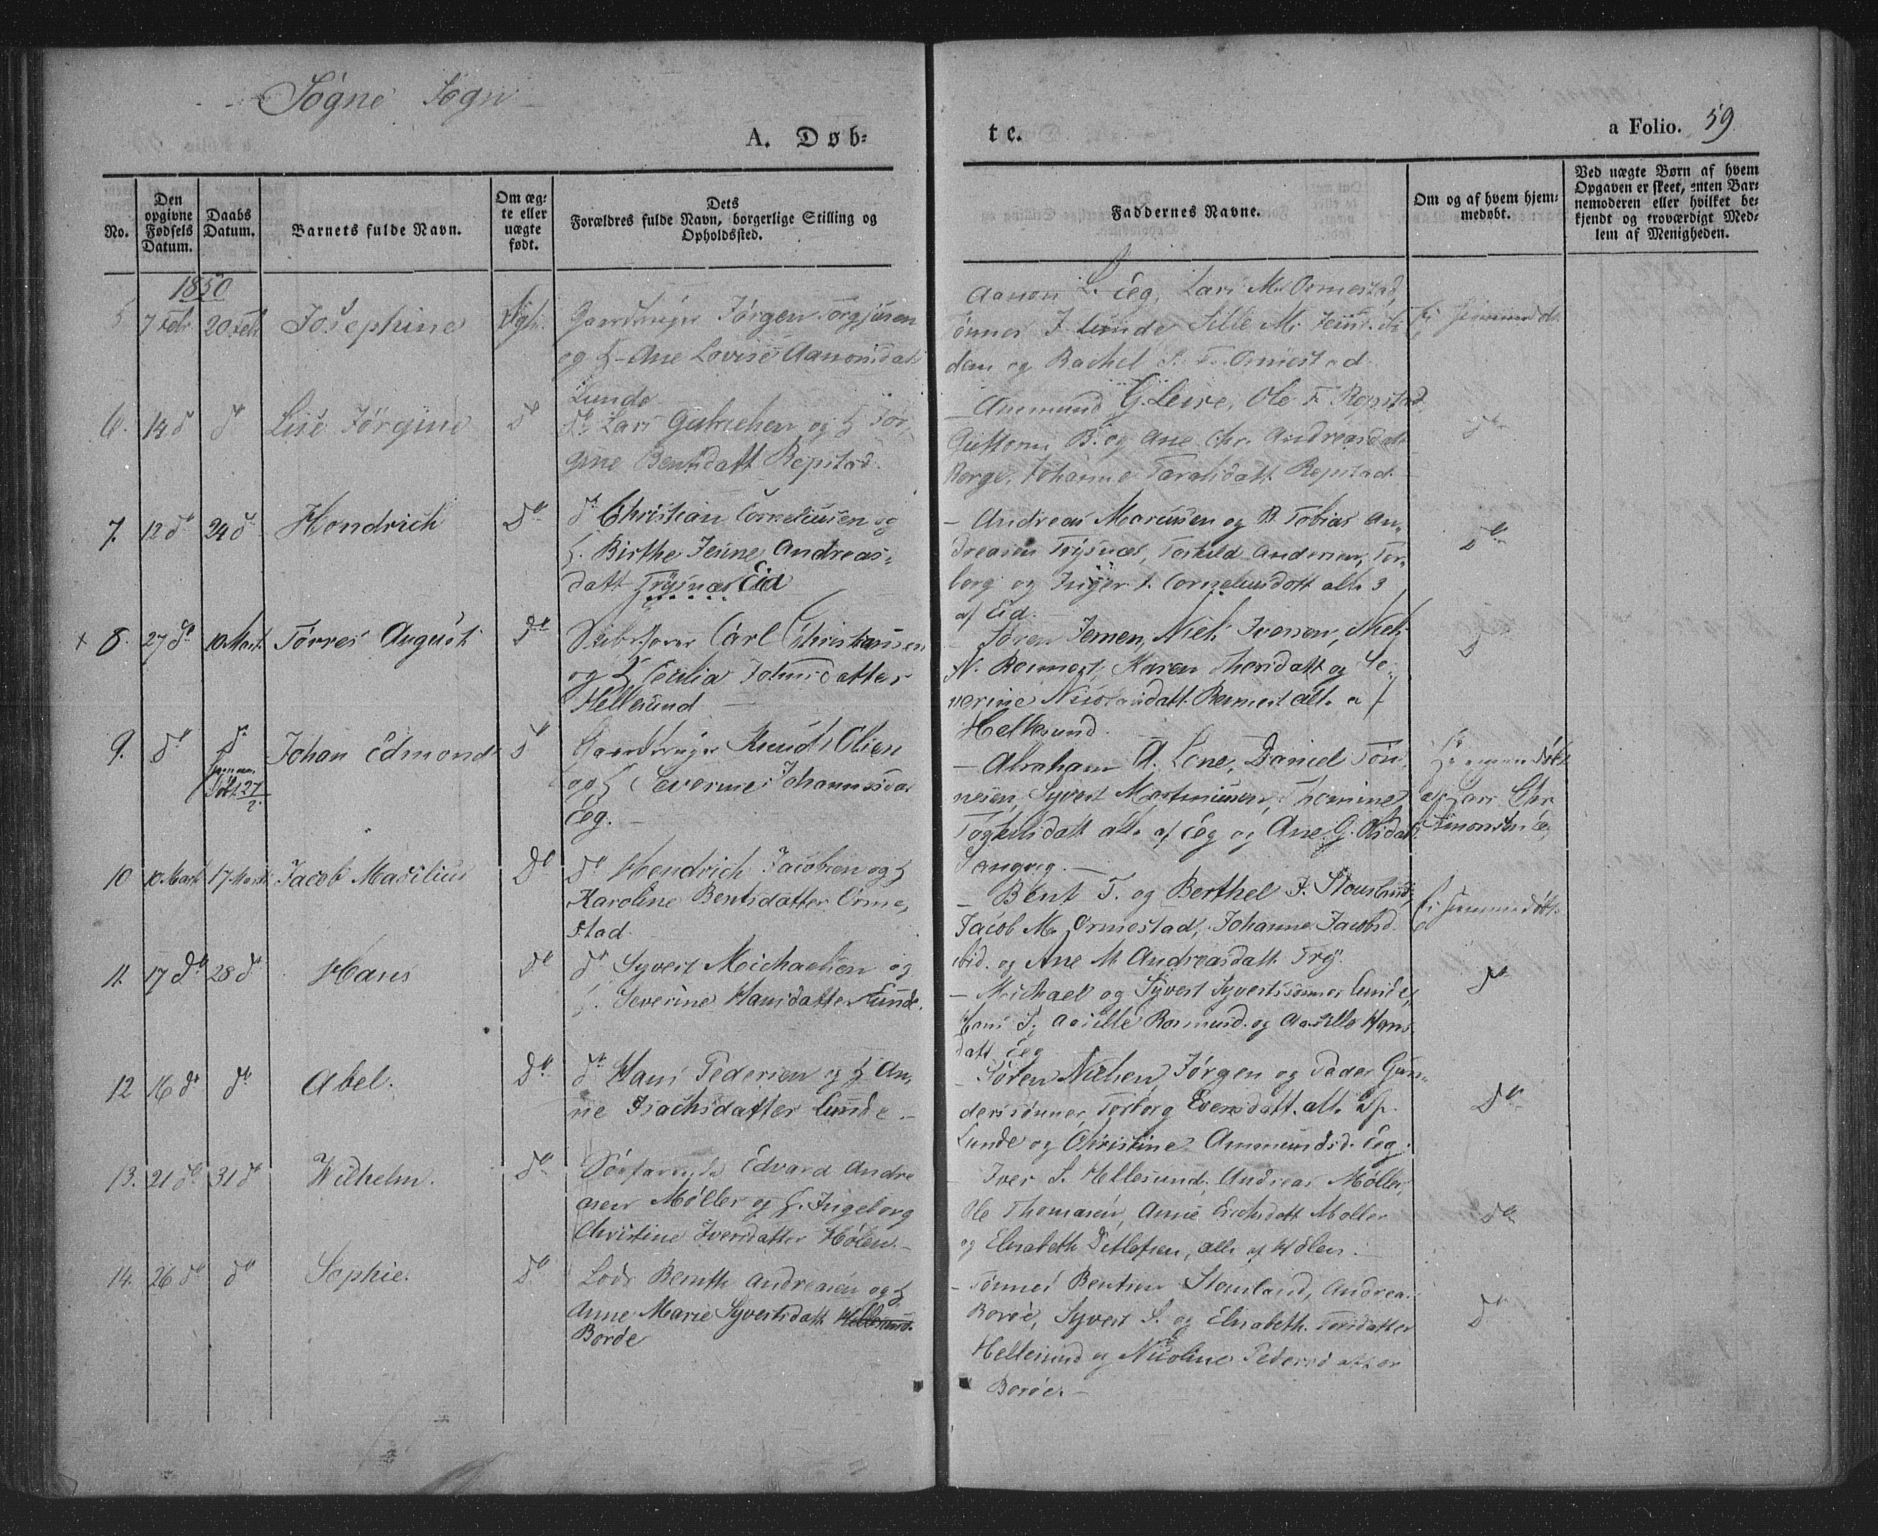 Søgne Sogn
A. Døb-
te.
a Folio. 59
No.
Den opgivne Fødsels Datum.
Daabs Datum.
Barnets fulde Navn.
Om ægte eller uægte født.
Dets Forældres fulde Navn, borgerlige Stilling og Opholdssted.
Faddernes Navne.
Om og af hvem hjemmedøbt.
Ved uægte Børn af hvem Opgaven er skeet, enten Barnemoderen eller hvilket bekjendt og troværdigt Medlem af Menigheden.
1850
5. 7 Febr. 20 Febr. Josephine Ægte Gaardbruger Jørgen Torgjusen
og H. Ane Lovise Aanonsdatt
Lunde
Aanon L. Eeg, Lars M. Ormestad,
Tønnes J. Lunde Sille M.
og Rachel S. T. Ormestad
Ei hjemmed.
6. 14 d° d° Lise Jørgine d°
d° Lars Gabrielsen og H Jør-
gine Bentsdatt Repstad.
- Anmund G. Leire, Ole T. Repstad
Guttorm B. og Ane Chr. Andreasdatt
Berge, Johanne Taraldsdatt Repstad
d°
7. 12 d° 24 d° Hendrich D°
d° Christian Corneliussen og
H. Birthe Jenne Andreas-
datt Trysnæs Eid
- Andreas Marcussen og B Tobias An-
dreasen Trysnæs, Torkild Andersen, Tor-
borg og Inger T. Corneliusdatt alle 3
af Eid.
D°
+ 8. 27 d° 10 Mart. Tørres August D°
Skibsfører Carl Christiansen
og H Cecilia Johnsdatter
Hellesund
- Søren Jensen, Niels Iversen,
N. Reimert, Karen Thorsdatt og Se-
verine Nicolaidatt Reimert alle af
Hellesund.
D°
9. d° d° hjemmedøbt 27/2. Johan Edmond d°
Gaardbruger Knud Olsen
og H Severine Johannesdatt
Eeg.
- Abraham A. Lone, Daniel Tøn-
nesen, Syvert Martinussen, Thomine
Tøgersdatt alle af Eeg og Ane G. Olsdatt
Hjemmedøbt
af Lars Chr
Simonsen Eeg
10 10 Mart. 17 Mart. Jacob Masilius D°
d° Hendrich Jacobsen og H
Karoline Bentsdatter Orme-
stad
- Bent T. og Berthel P. Stousland,
Jacob M. Ormestad, Johanne Jacobsd.
ibid. og Ane M Andreasdatt Try.
Ei hjemmedøbt.
11. 17 d° 28 d° Hans D°
d° Syvert Michaelsen og
H. Severine Hansdatter Lunde.
- Michael og Syvert Syvertssønner Lunde,
Hans S., Aasille Rasmusd. og Aasille Hans-
datt Eeg
D°
12 16 d° d° Abel. D°
d° Hans Pedersen og H An-
ne Isachsdatter Lunde -
- Søren Nielsen, Jørgen og Peder Gun-
derssønner, Torborg Evensdatt. alle af
Lunde og Christine Ammundsd. Eeg.
D°
13. 21 d° 31 d° Wilhelm. D°
Edvard Andre
asen Møller og H. Ingeborg
Christine Iversdatter Hølen -
Iver S. Hellesund, Andreas Møller,
Ole Thomasen, Anne Erichsdatt Møller
og Elisabeth Ditlefsen, alle af Hølen. -
D°
14. 26 d° d° Sophie. D°
Lods Bernth Andreasen og H
Anne Marie Syvertsdatt Hellesund.
Borøe
- Tønnes Bentsen Stousland, Andreas
Borøe, Syvert S. og Elisabeth Torsdatter
Hellesund og Nicoline Pedersdatter
Borøe. -
D°